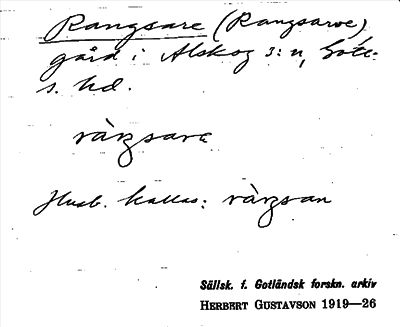 Rangsare (Rangsarve)
gård i Alskog s:n, Gote-
s. hd.
ràŋsara
Husb. kallas: ràŋsan
Sällsk. f. Gotländsk forskn. arkiv
HERBERT GUSTAVSON 1919—26